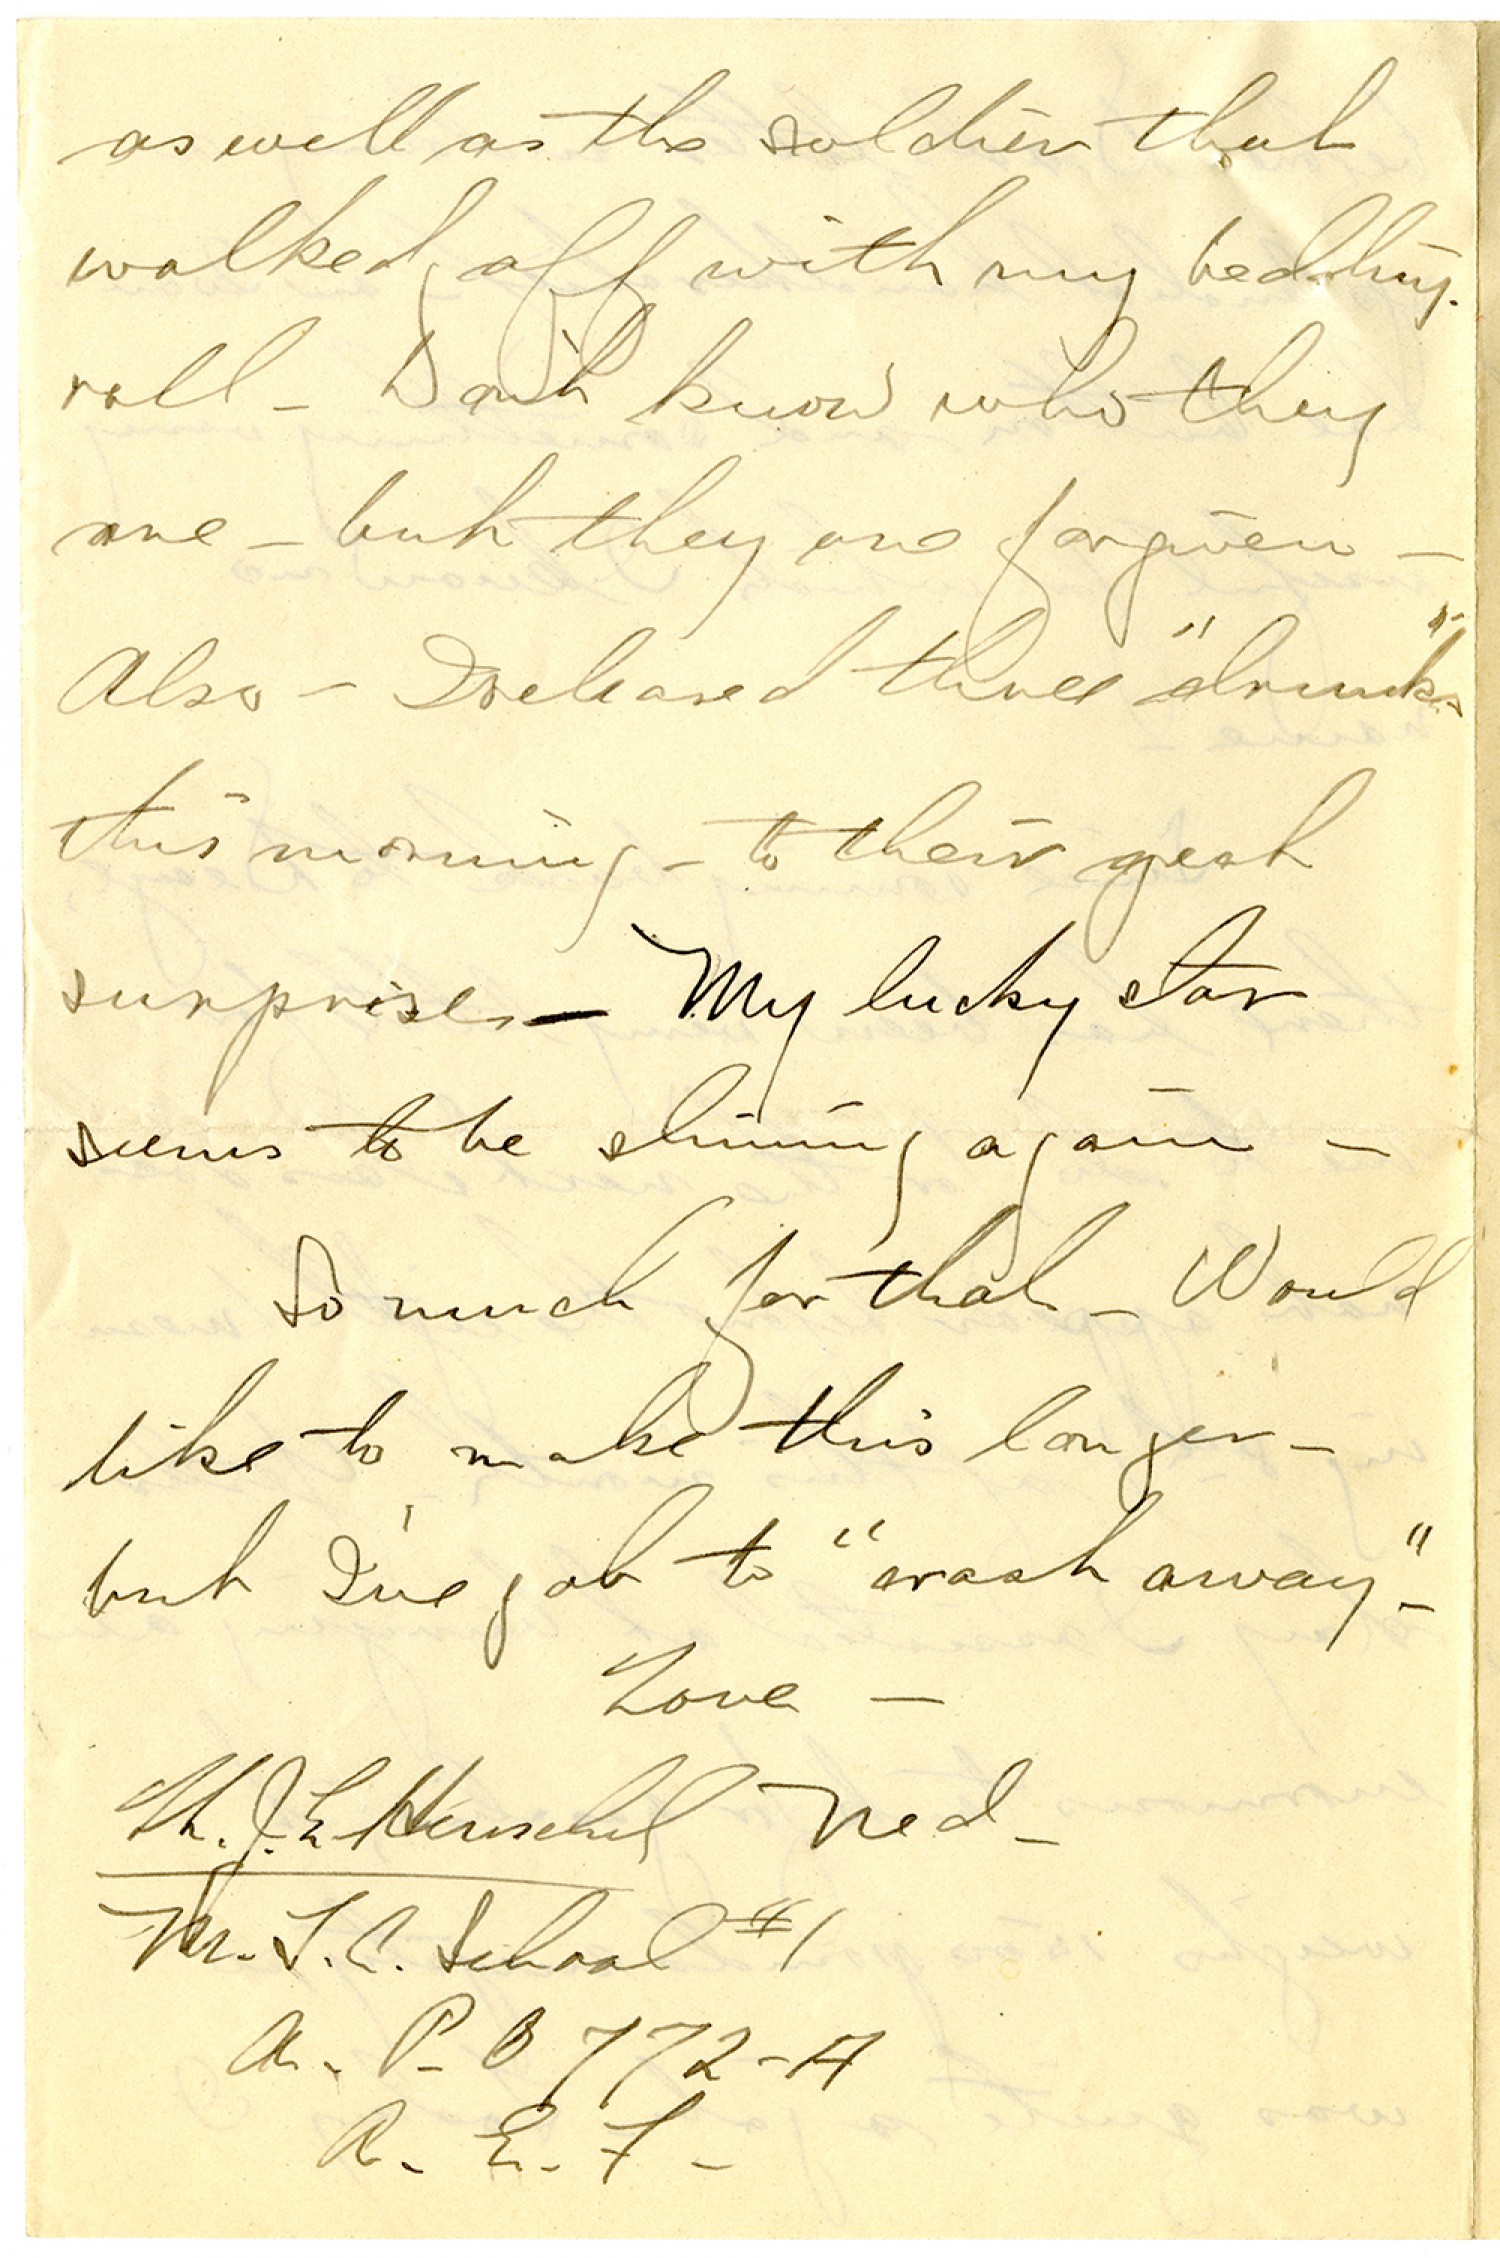 as well as the soldier that
walked off with my bedding
roll - Don't know who they
are - but they are forgiven -
Also - I released three "drunks"
this morning - to their great
surprise - My lucky star
seems to be shining again -
So much for that - Would
like to make this longer -
but I've got to "wash away" -
Love -
J. E. Henschel Ned -
M. T. C. School #1
A. P. O 772-A
A. E. F. -